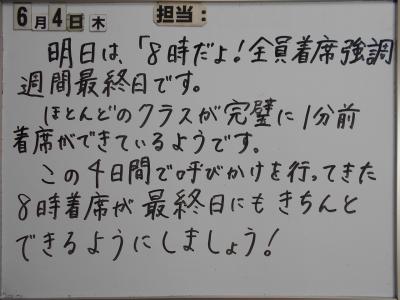 6月4日木 担当:
明日は、「8時だよ!全員着席強調
週間最終日です。
ほとんどのクラスが完璧に1分前
着席ができているようです。
この4日間で呼びかけを行ってきた
8時着席が最終日にもきちんと
できるようにしましょう!